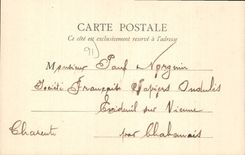 CARTE POSTALE
Ce côté est exclusivement réservé à l'adresse
91
Monsieur Paul Norgnin
Société Française Papiers Ondulés
Exideuil sur Vienne
Charente par Chabanais